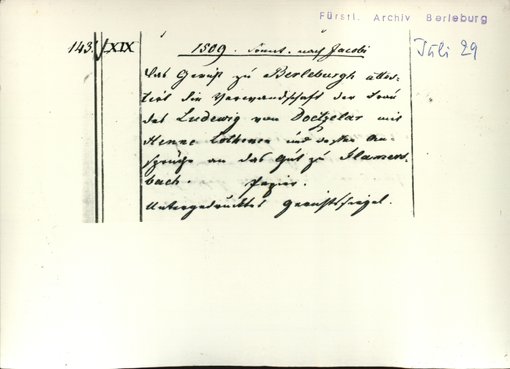 Fürstl. Archiv Berleburg
143. XIX
1509. Sonnt. nach Jacobi
Juli 29
Das Gericht zu Berleburgh attes-
tirt die Verwandschaft der Frau
des Ludewig von Doetzelar mit
Henne und dessen An-
sprüche an das Gut zu
bach. Papier.
Untergedrucktes Gerichtssiegel.